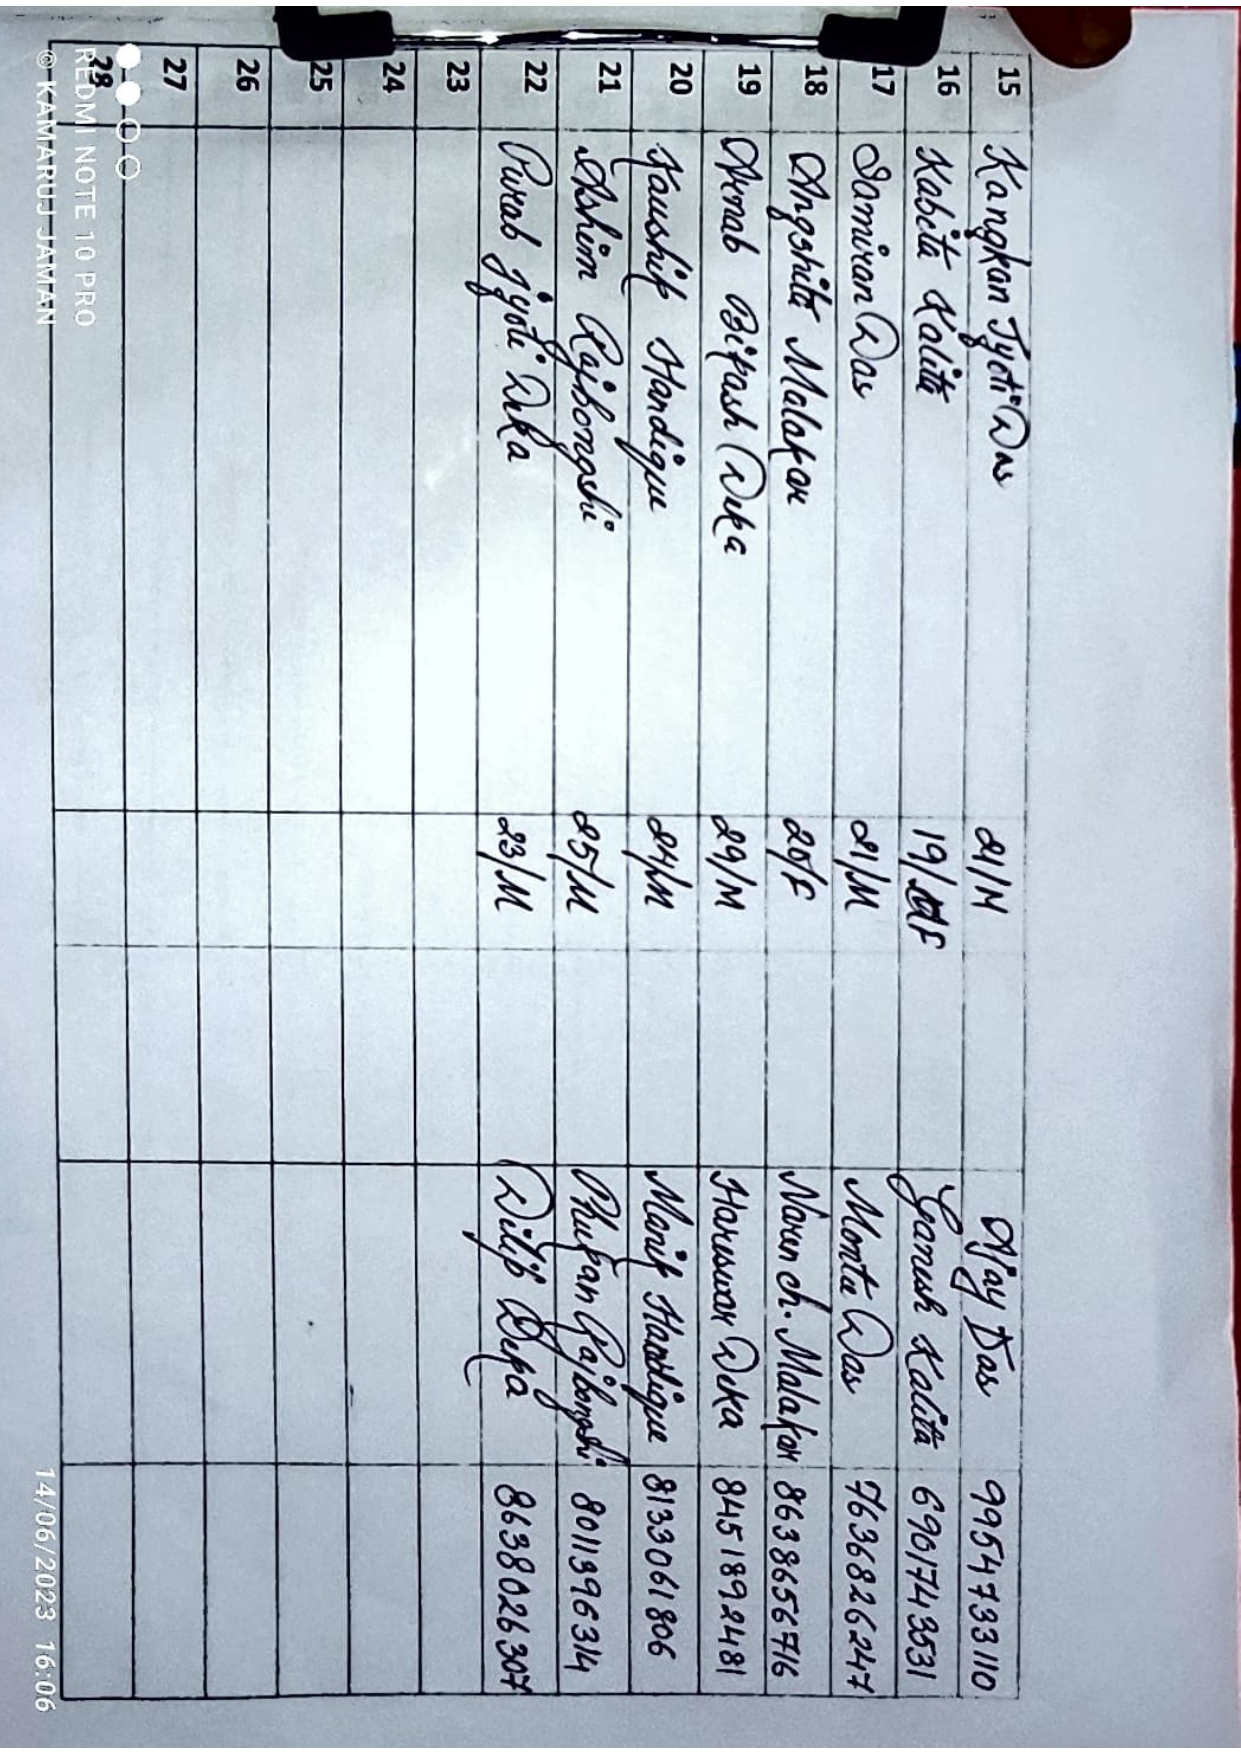 15 Kangkan Jyoti Das 21/M Ajay Das 9954733110
16 Kabita Kalita 19/F Ganesh Kalita 6901743531
17 Samiran Das 21/M Montu Das 7636826247
18 Angshita Malakar 20/F Naren ch. Malakar 8638656716
19 Arnab Bikash Deka 29/M Hareswar Deka 8451892481
20 Kaushik Handique 24/M Manik Handique 8133061806
21 Ashim Rajbongshi 25/M Phukan Rajbongshi 8011396314
22 Purab jyoti Deka 23/M Dilip Deka 8638026307
23
24
25
26
27
28
REDMI NOTE 10 PRO
© KAMARUJ JAMAN
14/06/2023 16:06